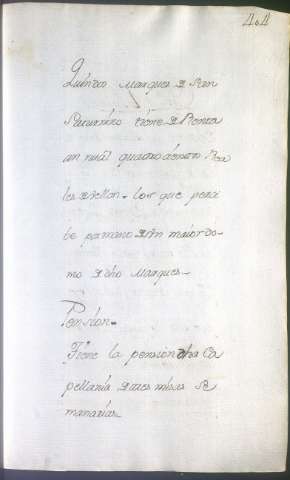 404
Quinto Marques de San
Saturnino tiene de Renta
anual quatrocientos Rea
les de vellon. los que perci
be por mano de un maiordo
mo de dho Marques.
Pension.
Tiene la pension dha Ca
pellania de tres misas se
manarias